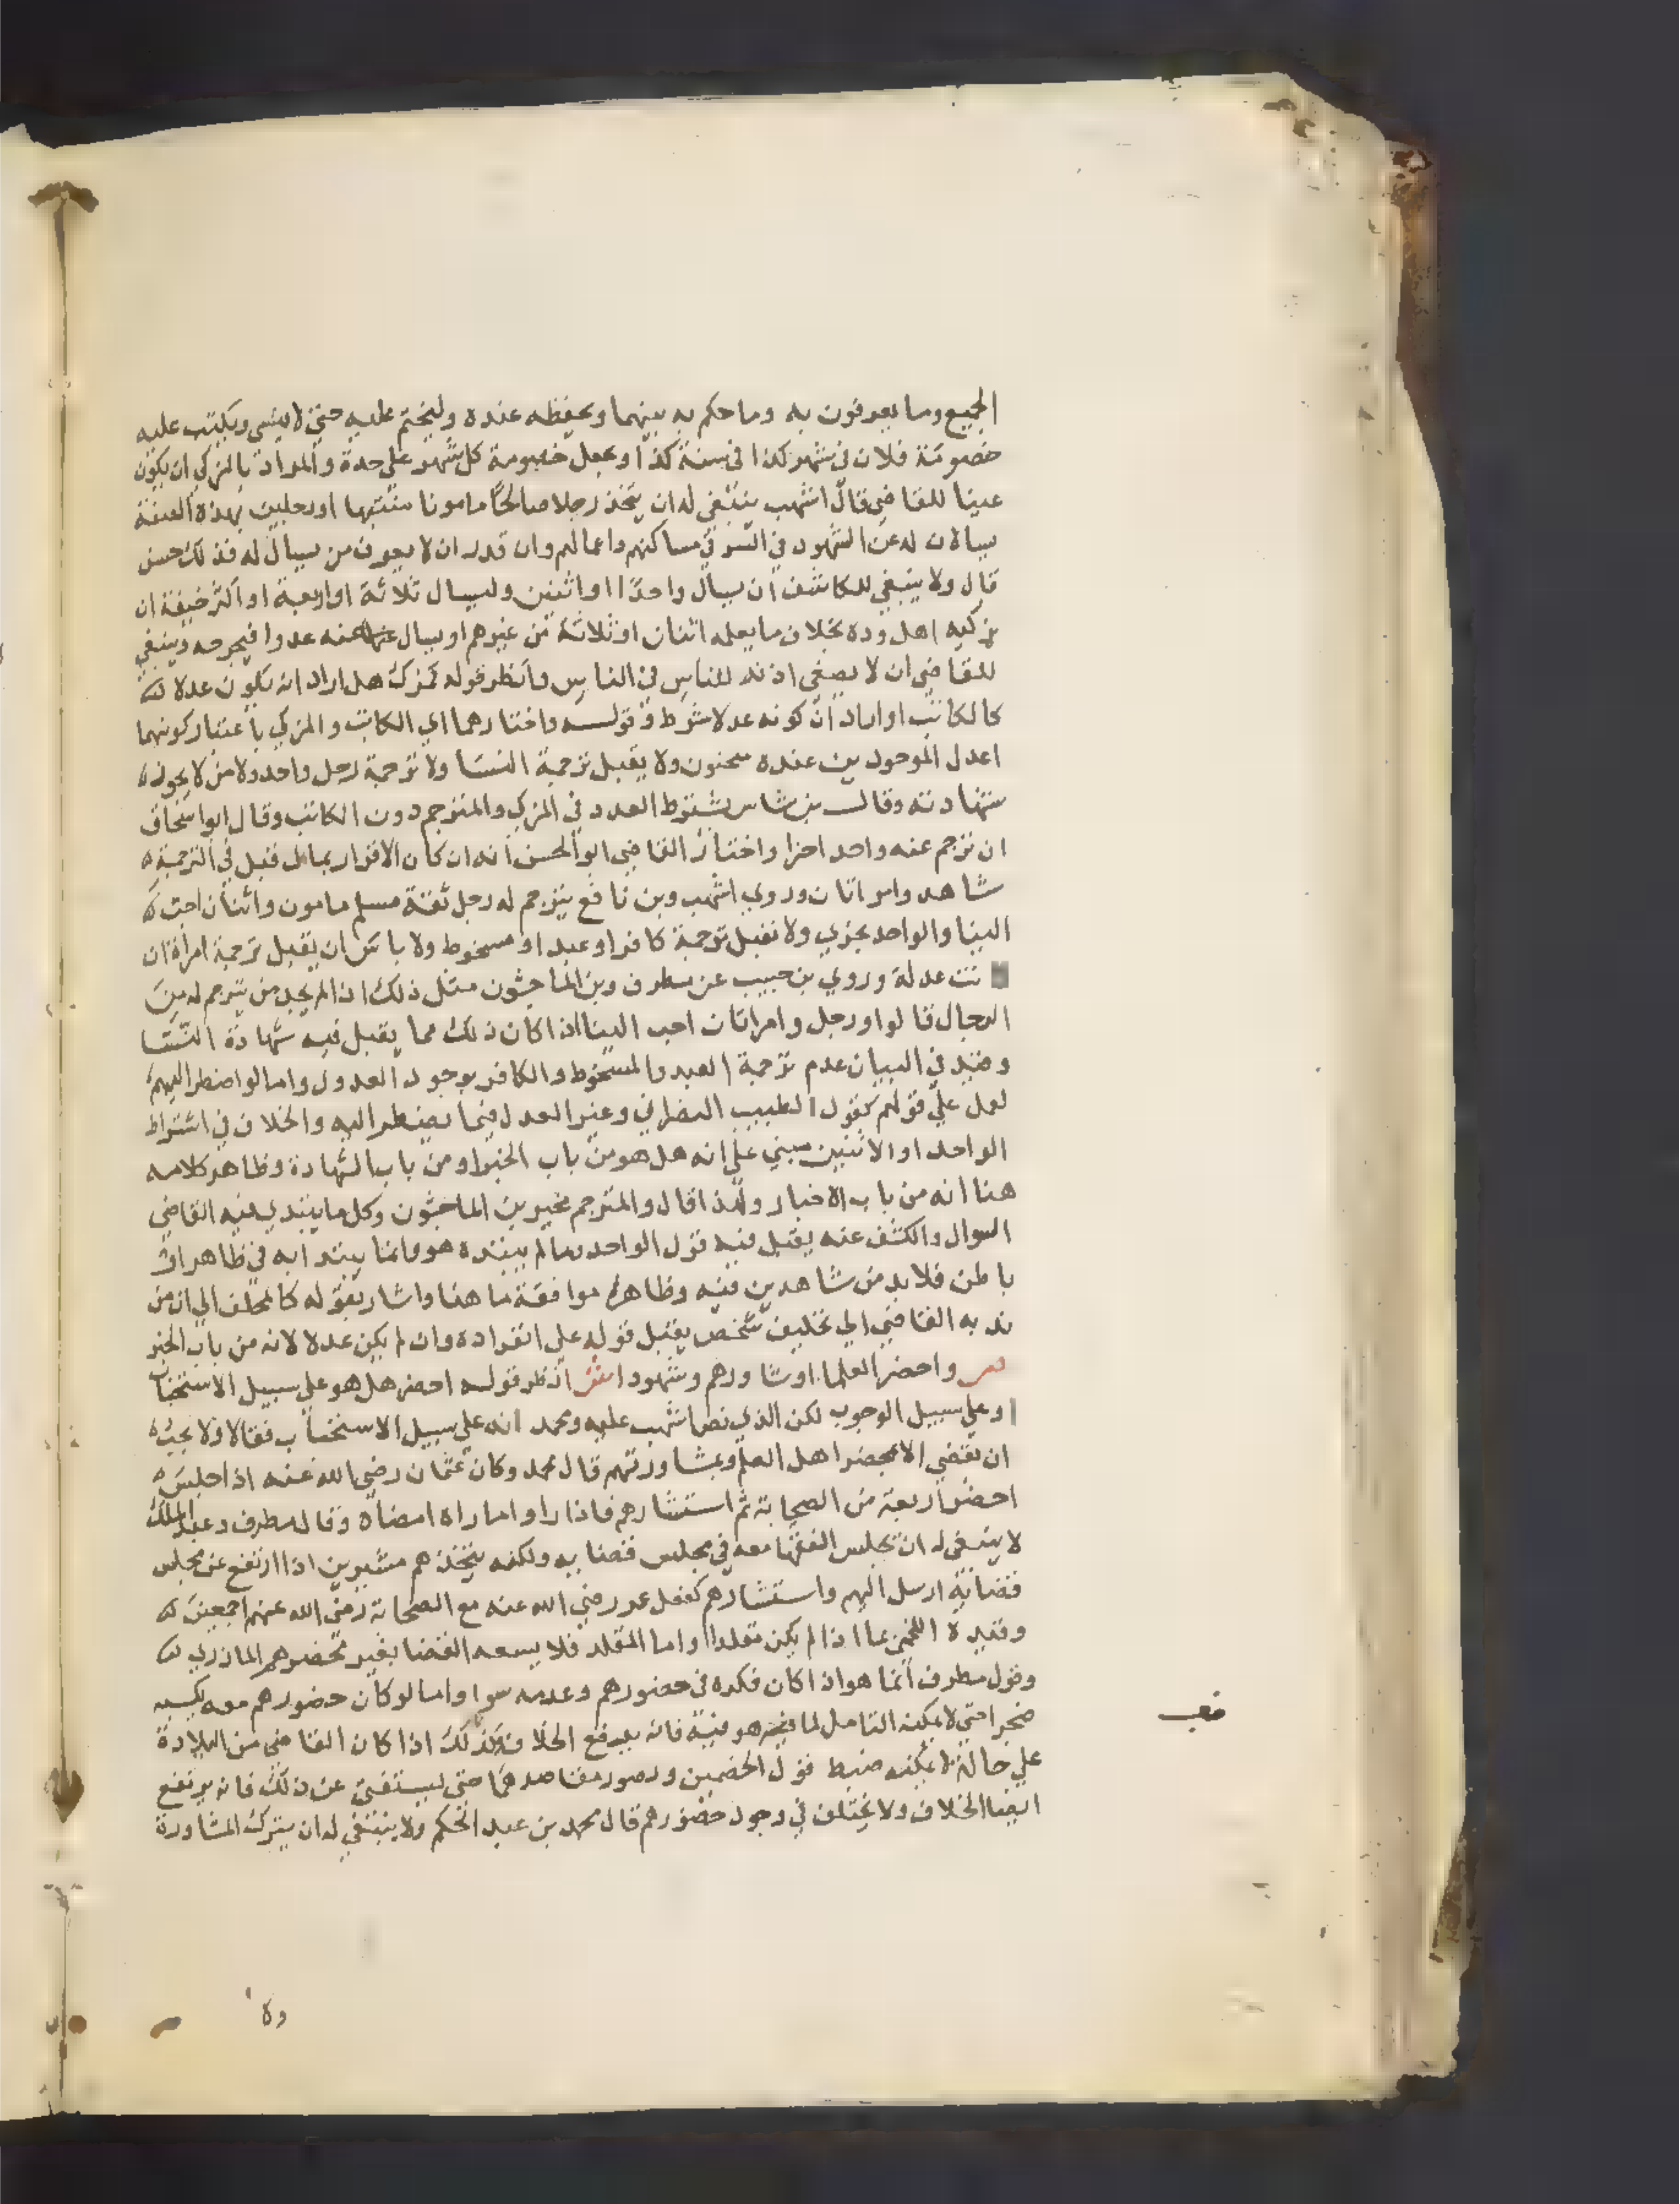 الجميع وما يعرفون به وما حكم به بينهما ويحفظه عنده وليختم عليه حتي لا ينسي ويكتب عليه
خصومة فلان في شهر كذا في سنة كذا ويجعل خصومة كل شهر علي حدة والمراد بالمزكي ان يكون
عينا للقاضي قال اشهب ينبغي له ان يتخذ رجلا صالحا مامونا منتبها او رجلين بهذه الصفة
يسالان له عن الشهود في السر في مساكنهم واعمالهم وان قدر ان لا يعرف من يسال له فذلك حسن
قال ولا ينبغي للكاشف ان يسال واحدا او اثنين وليسال ثلاثة او اربعة او اكثر خيفة ان
يزكيه اهل وده بخلاف ما يعلمه اثنان او ثلاثة من غيرهم او يسال عنه عدوا فيجرحه وينبغي
للقاضي ان لا يصغي اذنه للناس في الناس وانظر قوله كمزك هل اراد ان يكون عدلا
كالكاتب او اراد ان كونه عدلا شرط وقوله واختارهما اي الكاتب والمزكي باعتبار كونهما
اعدل الموجودين عنده سحنون ولا يقبل ترجمة النسا ولا ترجمة رجل واحد ولا من لا يجوز
شهادته وقال بن شاس يشترط العدد في المزكي والمترجم دون الكاتب وقال ابو اسحاق
ان ترجم عنه واحد اجزا واختار القاضي ابو الحسن انه ان كان الاقرار بمال قبل في الترجمة
شاهد وامراتان وروي اشهب وبن نافع يترجم له رجل ثقة مسلم مامون واثنان احب
الينا والواحد يجزي ولا نقبل ترجمة كافر او عبد او مسخوط ولا باس ان يقبل ترجمة امراة ان
نت عدلة وروي بن حبيب عن مطرف وبن الماجشون مثل ذلك اذا لم يجد من يترجم له من
الرجال قالوا ورجل وامراتان احب الينا اذا كان ذلك مما يقبل فيه شهادة النسا
وقيد في البيان عدم ترجمة العبد والمسخوط والكافر بوجود العدول واما لو اضطر اليهم
لعمل علي قولهم كقول الطبيب النصراني وغير العدل فيما يضطر اليه والخلاف في اشتراط
الواحد او الاثنين مبني علي انه هل هو من باب الخبر او من باب الشهادة وظاهر كلامه
هنا انه من باب الاخبار ولهذا قال والمترجم مخبر بن الماجشون وكل ما يبتدي فيه القاضي
السوال والكشف عنه يقبل فيه قول الواحد وما لم يبتده هو وانما يبتدا به في ظاهر او
باطن فلا بد من شاهدين فيه وظاهره موافقة ما هنا واشار بقوله كالمحلف الي ان من
ندبه القاضي الي تحليف شخص يقبل قوله علي انفراده وان لم يكن عدلا لانه من باب الخبر
ص واحضر العلما او شاورهم وشهودا ش انظر قوله احضر هل هو علي سبيل الاستحباب
او علي سبيل الوجوب لكن الذي نص اشهب عليه ومحمد انه علي سبيل الاستحباب فقالا ولا يجب
ان يقضي الا بمحضر اهل العلم وبمشاورتهم قال محمد وكان عثمان رضي الله عنه اذا جلس
احضر اربعة من الصحابة ثم استشارهم فاذا راوا ما راه امضاه وقال مطرف وعبد الملك
لا ينبغي له ان يجلس الفقها معه في مجلس قضايه ولكنه يتخذهم مشيرين اذا ارتفع عن مجلس
قضائه ارسل اليهم واستشارهم كفعل عمر رضي الله عنه مع الصحابة رضي الله عنهم اجمعين
وقيده اللخمي بما اذا لم يكن مقلدا واما المقلد فلا يسعه القضا بغير محضرهم المازري
وقول مطرف انما هو اذا كان فكره في حضورهم وعدمه سوا واما لو كان حضورهم معه يكسبه
ضجرا حتي لا يمكنه التامل لما هو فيه فانه يرفع الخلاف وكذلك اذا كان القاضي من البلادة
علي حالة لا يمكنه ضبط قول الخصمين وتصور مقاصدهما حتي يستفتي عن ذلك فانه يرتفع
ايضا الخلاف ولا يختلف في وجود حضورهم قال محمد بن عبد الحكم ولا ينبغي له ان يترك المشاورة